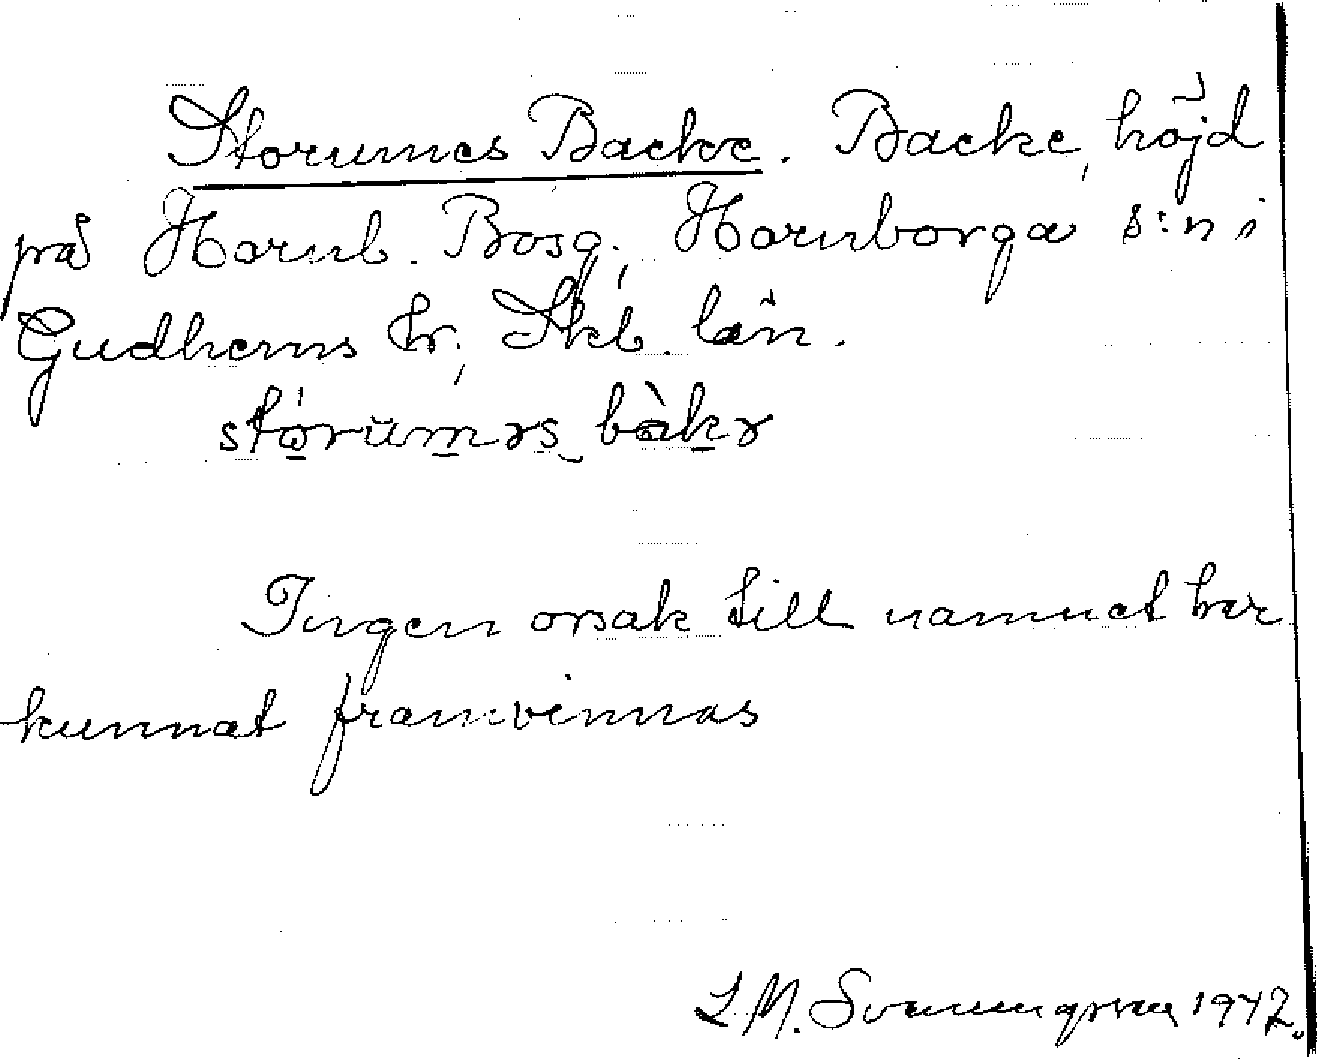 Storumes Backe. Backe, höjd
på Hornb. Bosg., Hornborga s:n i
Gudhems hr., Skb. län.
Ingen orsak till namnet har
kunnat framvinnas
L. M. 1942.